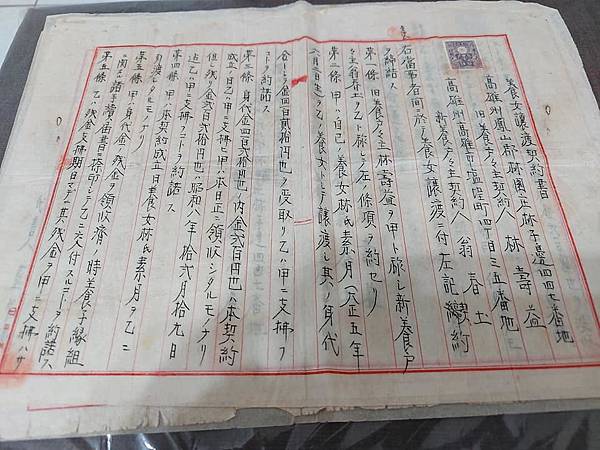 養女讓渡契約書
高雄州鳳山郡林園庄林子邊四四七番地
旧養家戶主契約人 林壽益
高雄州高雄市塩埕町四丁目三五番地
新養家戶主契約人 翁春土
右當事者間ニ於テ養女讓渡ニ付左記契約
ヲ締結ス
第一條 旧養家戶主林壽益ヲ甲ト称シ新養家戶
主翁春土ヲ乙ト称シ左ノ條項ヲ約セリ
第二條 甲ハ自己ノ養女林氏素月(大正五年
六月二日生)ヲ乙ノ養女トシテ讓渡シ其ノ身代
金トシテ金四百貳拾円也ヲ受取リ乙ハ甲ニ支拂フ
コトヲ約諾ス
第三條 身代金四百貳拾円也ノ内金貳百円也ハ本契約
成立ノ日乙ハ甲ニ支拂ヒ甲ハ本日正ニ領收シタルモノナリ
但シ残リ金貳百貳拾円也ハ昭和八年拾貳月拾九日
迄乙ハ甲ニ支拂フコトヲ約諾ス
第四條 甲ハ本契約成立ノ日養女林氏素月ヲ乙ニ
引渡シタルモノナリ
第五條 甲ハ身代金ノ残金ヲ領收濟ノ時養子緣組
ニ関スル諸手續書ニ捺印シテ乙ニ交付スルコトヲ約諾ス
第六條 乙ハ残金支拂期日マデニ其残金ヲ甲ニ支拂ハザ